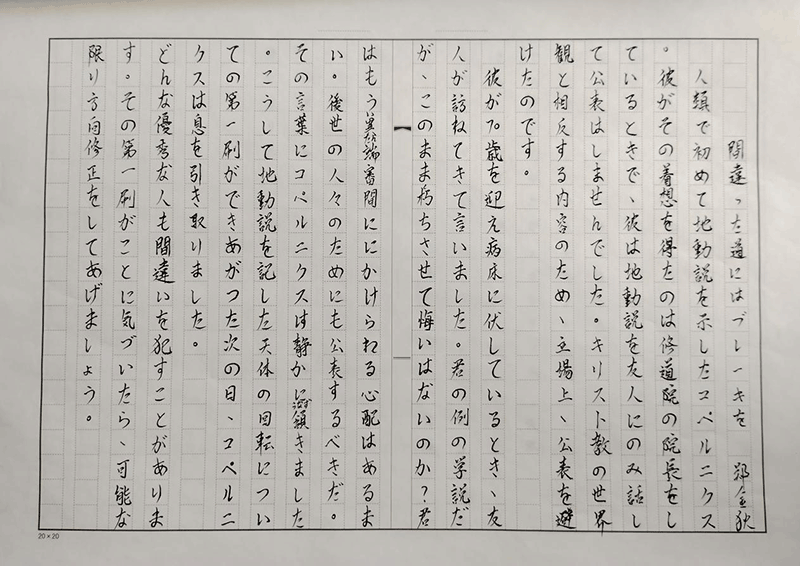 間違った道にはブレーキを 鄭金耿
人類で初めて地動説を示したコペルニクス
。彼がその着想を得たのは修道院の院長をし
ているときで、彼は地動説を友人にのみ話し
て公表はしませんでした。キリスト教の世界
観と相反する内容のため、立場上、公表を避
けたのです。
彼が70歳を迎え病床に伏しているとき、友
人が訪ねてきて言いました。君の例の学説だ
が、このまま朽ちさせて悔いはないのか?君
はもう異端審問ににかけられる心配はあるま
い。後世の人々のためにも公表するべきだ。
その言葉にコペルニクスは静かに頷きました
。こうして地動説を記した天体の回転につい
ての第一刷ができあがった次の日、コペルニ
クスは息を引き取りました。
どんな優秀な人も間違いを犯すことがありま
す。その第一刷がことに気づいたら、可能な
限り方向修正をしてあげましょう。
20×20